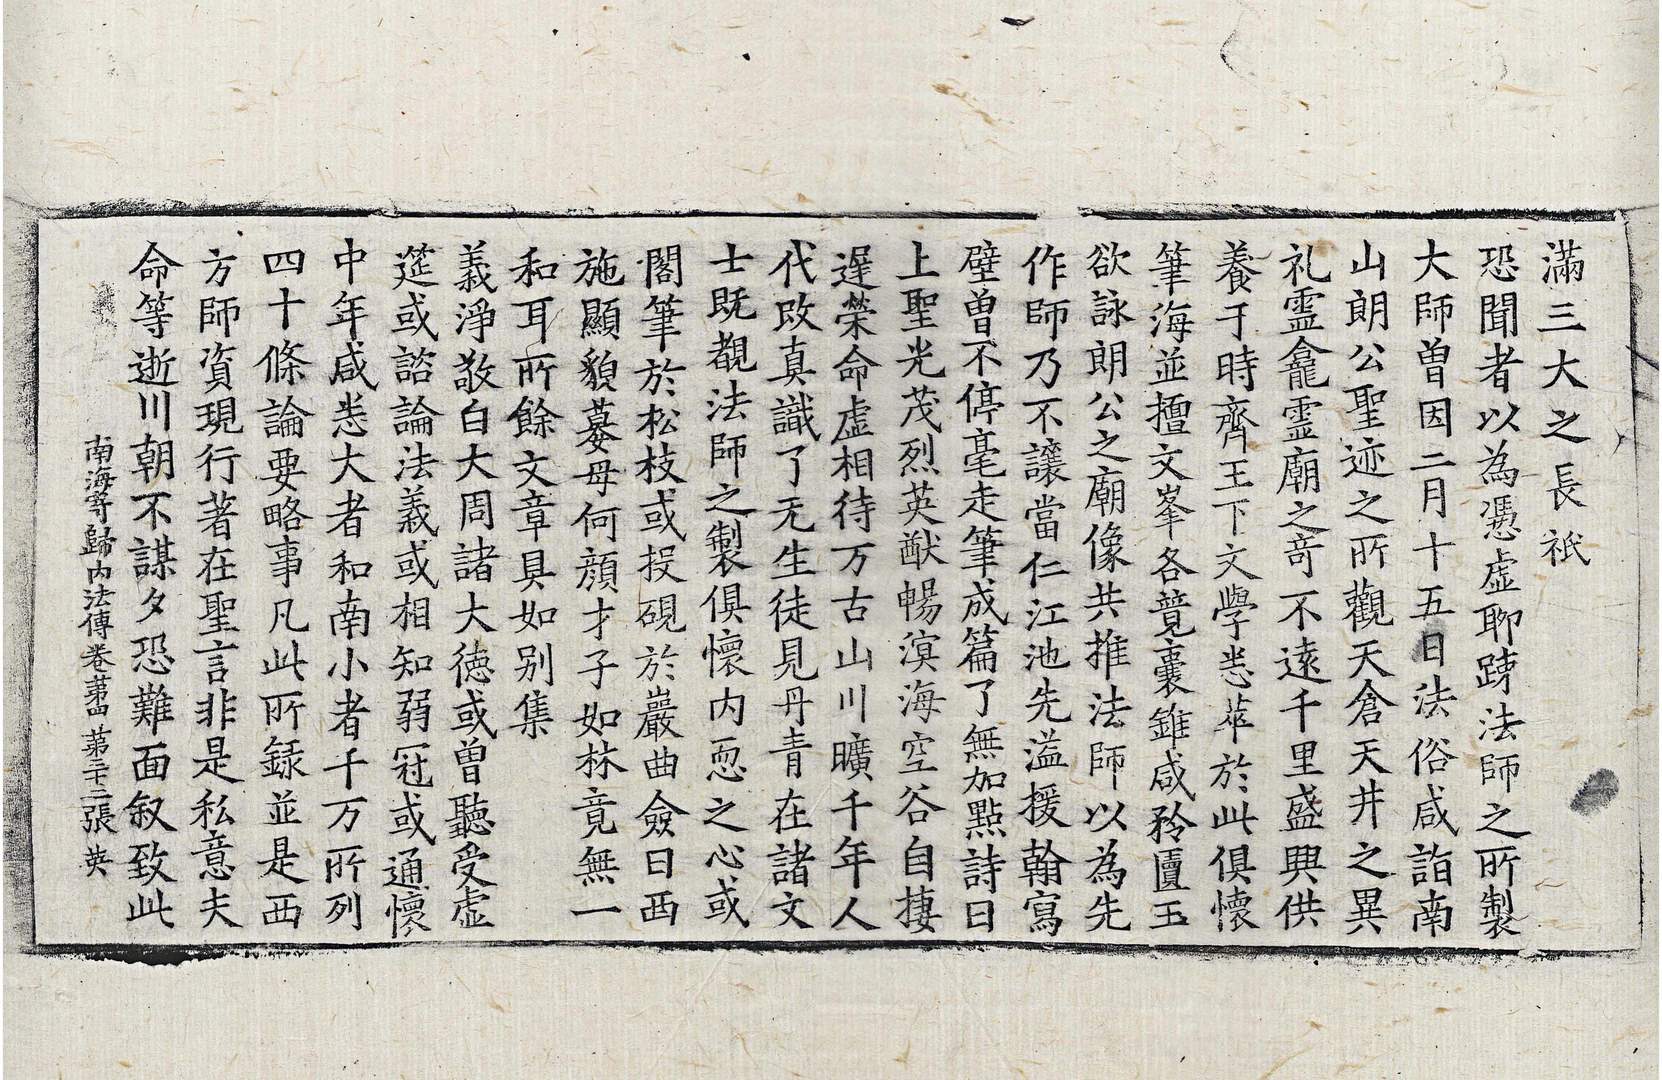 滿三大之長祇
恐聞者以為憑虛聊踈法師之所製
大師曽因二月十五日法俗咸詣南
山朗公聖迹之所觀天倉天井之異
礼霊龕霊廟之竒不遠千里盛興供
養于時齊王下文學悉萃於此俱懷
筆海並擅文峯各竟囊錐咸矜匵玉
欲詠朗公之廟像共推法師以為先
作師乃不讓當仁江池先溢援翰寫
壁曽不停毫走筆成篇了無加點詩曰
上聖光茂烈英猷暢溟海空谷自捿
遲榮命虛相待万古山川曠千年人
代改真識了无生徒見丹青在諸文
士既覩法師之製俱懷内恧之心或
閣筆於松枝或投硯於巖曲僉曰西
施顯貌嫫母何顔才子如林竟無一
和耳所餘文章具如别集
義淨敬白大周諸大德或曽聽受虛
筵或諮論法義或相知弱冠或通懷
中年咸悉大者和南小者千万所列
四十條論要略事凡此所録並是西
方師資現行著在聖言非是私意夫
命等逝川朝不謀夕恐難面叙致此
南海寄歸内法傳卷苐四 苐三十三張 英